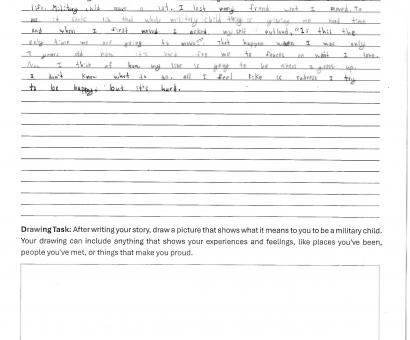 life. Military child have a lot. I lost every friend what I moved. To
me it sonic ish that whole military child thing is giving me hard time
and when I first moved I asked my self outloud, "Is this the
only time we are going to move?" That happen when I was only
7 years old now it's hard for me to focuss on what I love.
Now I think of how my live is going to be when I grown up.
I don't know what to do. all I feel like is sadness I try
to be happy, but it's hard.
Drawing Task: After writing your story, draw a picture that shows what it means to you to be a military child.
Your drawing can include anything that shows your experiences and feelings, like places you've been,
people you've met, or things that make you proud.